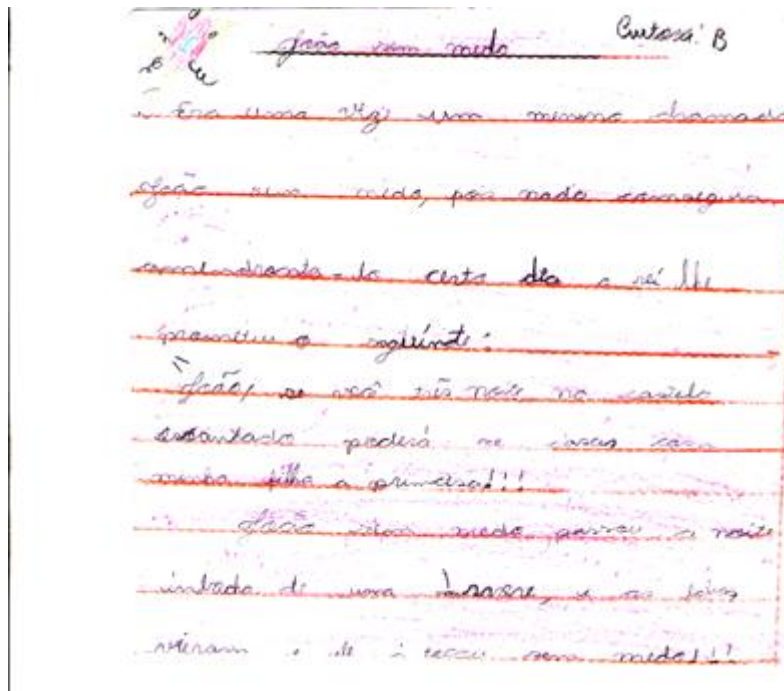 João sem medo
Era uma vez um menino chamado
João sem medo, pois nada conseguia
amendronta-lo certo dia o rei lhe
prometeu o seguinte:
"João, se você três noite no castelo
assantado poderá se casar com
minha filha a princesa!!!
João sem medo passou a noite
de uma árvore, e as
vieram e ele sem medo!!!